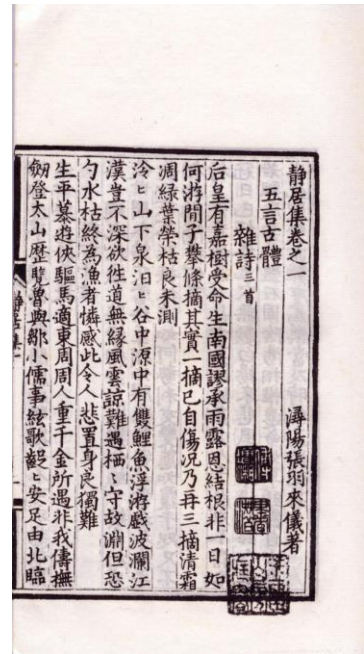 静居集卷之一
潯陽張羽來儀著
五言古體
雜詩三首
后皇有嘉樹受命生南國謬承雨露恩結根非一日如
何游閒子攀條摘其實一摘已自傷況乃再三摘清霜
凋綠葉榮枯良未測
泠〻山下泉汩〻谷中源中有雙鯉魚浮游戲波瀾江
漢豈不深欲徃道無緣風雲諒難遇栖〻守故淵但恐
勺水枯終為漁者憐感此令人悲置身良獨難
生平慕遊俠驅馬適東周周人重千金所遇非我儔撫
劒登太山歷覽魯與鄒小儒事絃歌齪〻安足由北臨